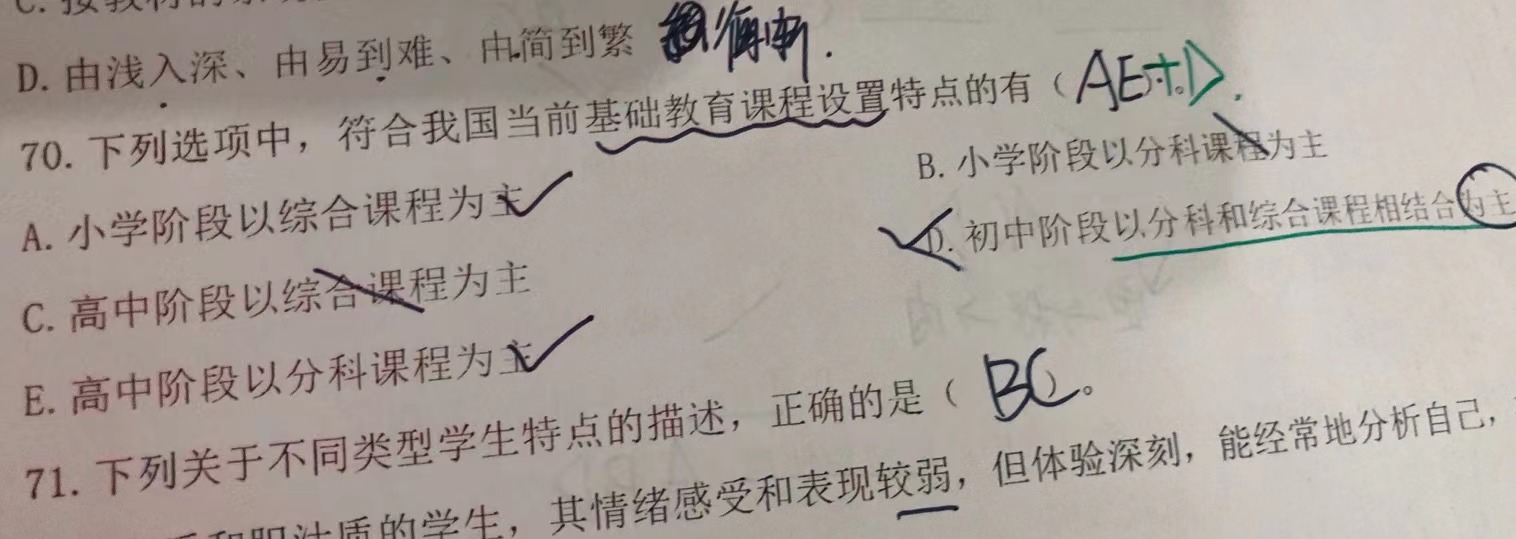 D. 由浅入深、由易到难、由简到繁
70. 下列选项中，符合我国当前基础教育课程设置特点的有（ AE+D
A. 小学阶段以综合课程为主
B. 小学阶段以分科课程为主
C. 高中阶段以综合课程为主
D. 初中阶段以分科和综合课程相结合为主
E. 高中阶段以分科课程为主
71. 下列关于不同类型学生特点的描述，正确的是（ BC ）。
质的学生，其情绪感受和表现较弱，但体验深刻，能经常地分析自己，